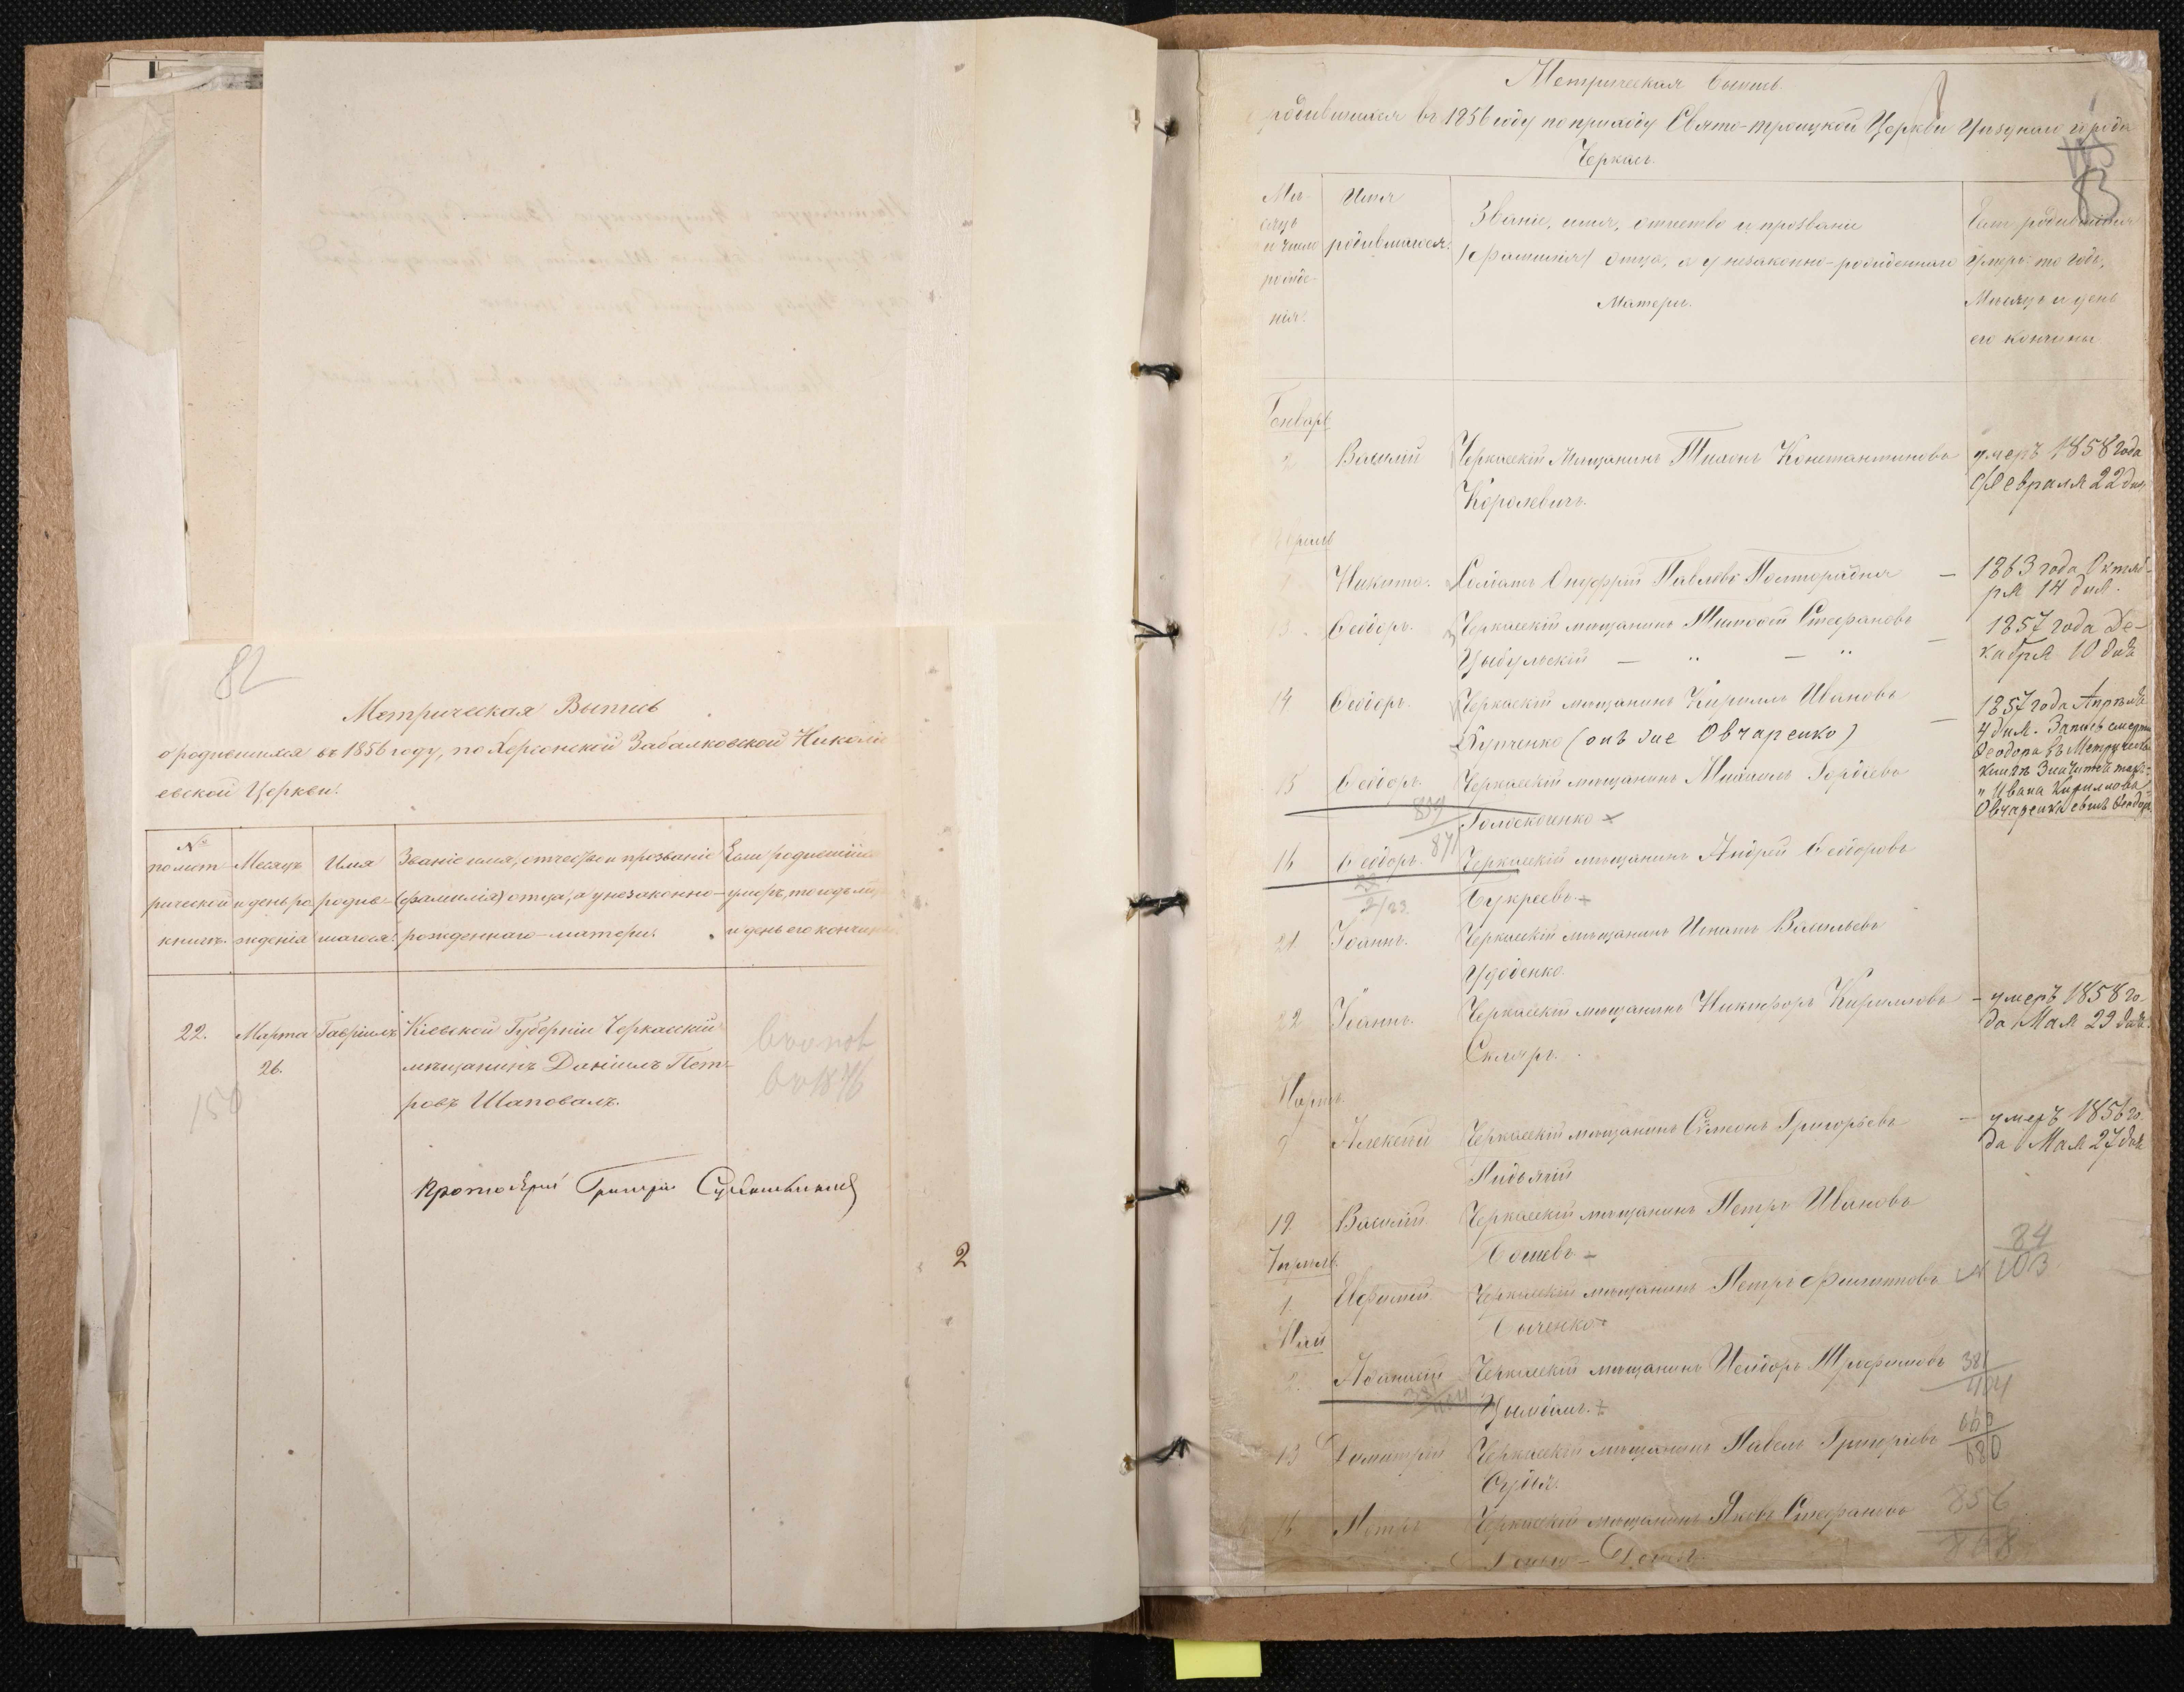 82
Метрическая Выпись
о родившимся въ 1856 году, по Херсонской Забалковской Никола
евской Церкви.
№ помет рической книги.
Месяцъ и день рожденія
Имя родив шагося.
Званіе имя, отчество и прозваніе (фамилія) отца, а у незаконно- рожденнаго - матери.
Если родившійся умеръ, то годъ и день его кончины
22.
Марта 26.
Гавріилъ
Кіевской Губерніи Черкасскій
мѣщанинъ Даніилъ Пет-
ровъ Шаповалъ.
150
Протоіерей Григорій
2
Метрическая выпись
родившихся въ 1856 году по приходу Свято-троицкой Церкви Уѣзднаго города
Черкасъ.
83
Мѣ- сяцъ и число рожде- нія.
Имя родившагося.
Званіе, имя, отчество и прозваніе (фамилія) отца, а у незаконно-рожденнаго Матери.
Если родившійся умеръ то годъ, Мѣсяцъ и день его кончины
Генварь
2 Василій Черкасскій Мѣщанинъ Тихонъ Константиновъ
Королевичъ.
умеръ 1858 года
февраля 22 дня
Никита. Солдатъ Онуфрій Павловъ
1863 года Октяб-
ря 14 дня.
13. Ѳеодоръ. Черкасскій мѣщанинъ Тимофей Стефановъ
Цыбульскій
1857 года Де-
кабря 10 дня
14 Ѳеодоръ. Черкасскій мѣщанинъ Кириллъ Ивановъ
Купченко (онъ же Овчаренко)
1857 года Апрѣля
4 дня. Запись смерти
Ѳеодора въ Метрическ.
книгѣ значится такъ:
" Ивана Кириллова
Овчаренка сынъ Ѳеодоръ
15 Ѳеодоръ. Черкасскій мѣщанинъ Михаилъ Гордіевъ
Голоскоченко
871
16 Ѳеодоръ. Черкасскій мѣщанинъ Андрей Ѳеодоровъ
Букреевъ
21 Іоаннъ. Черкасскій мѣщанинъ Игнатъ Васильевъ
Удоденко.
22 Іоаннъ. Черкасскій мѣщанинъ Никифоръ Кирилловъ
Скляръ.
умеръ 1858 го-
да Мая 29 дня.
Мартъ.
9 Алексѣй Черкасскій мѣщанинъ Симеонъ Григорьевъ
умеръ 1856 го-
да Мая 27 дня
19. Василій Черкасскій мѣщанинъ Петръ Ивановъ
Апрѣль.
1. Евфимій. Черкасскій мѣщанинъ Петръ Филипповъ
84
103
Май
2. Аѳанасій Черкасскій мѣщанинъ Исидоръ Трофимовъ
Цымбалъ.
381
404
13 Димитрій Черкасскій мѣщанинъ Павелъ Григоріевъ
Судья.
660
680
16 Петръ Черкасскій мѣщанинъ Яковъ Стефановъ
856
868